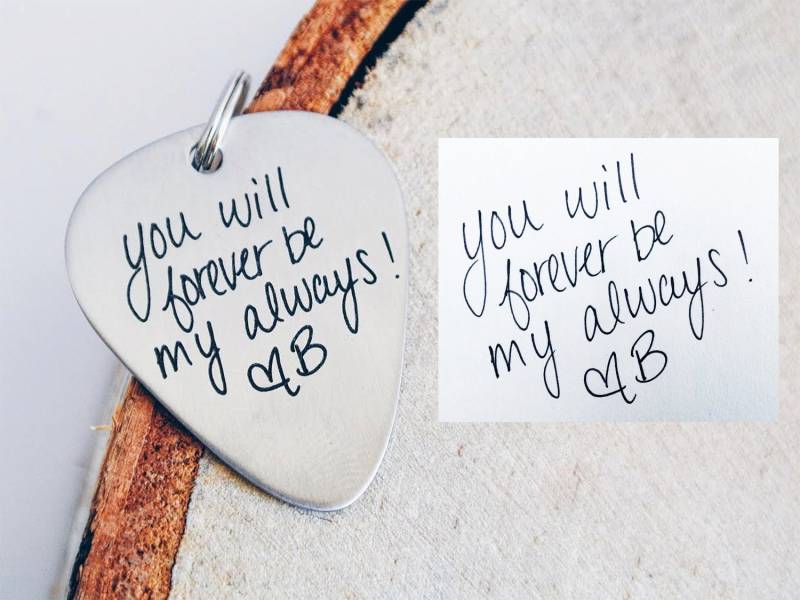 you will
forever be
my always!
♡B
you will
forever be
my always!
♡B